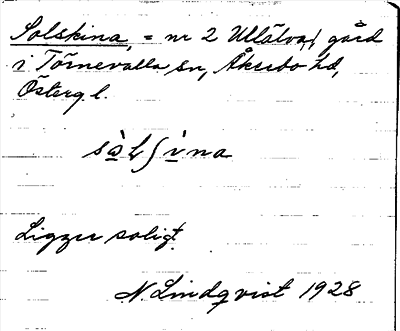 Solskina, = nr 2 Ullälva, gård
i Törnevalla sn, Åkerbo hd,
Österg. l.
sòlʃìna
Ligger soligt.
N. Lindqvist 1928